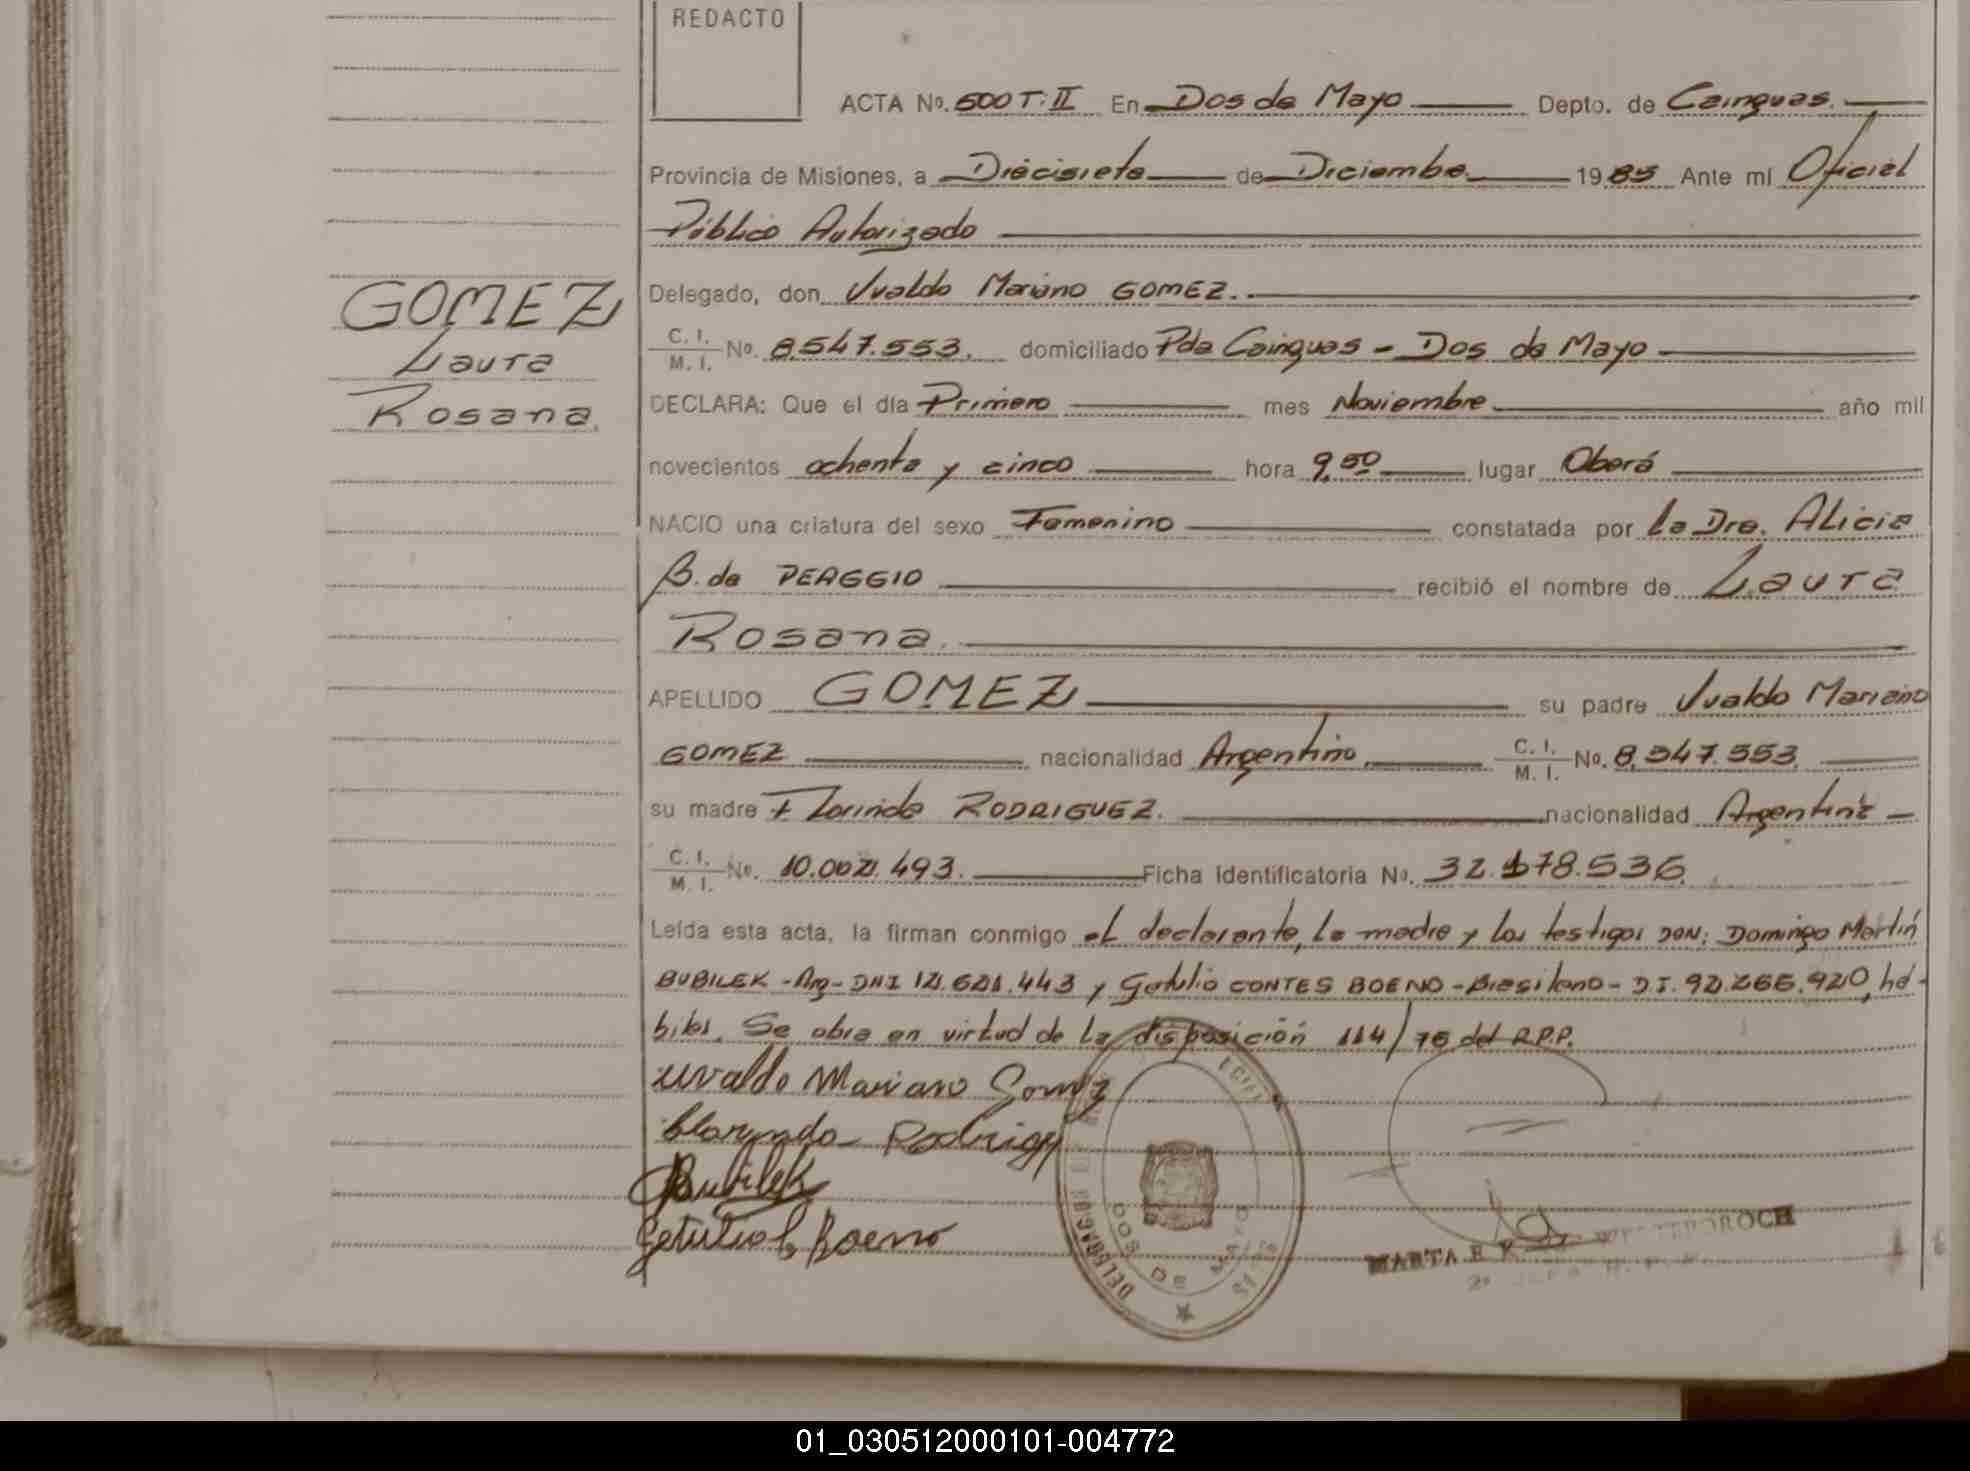 REDACTO
ACTA No. 500 T: II En Dos de Mayo Depto. de Cainguas.
Provincia de Misiones, a Diecisiete de Diciembre. 1985 Ante mi Oficial
Público Autorizado
GOMEZ
Laura
Rosana.
Delegado, don Uvaldo Mariano GOMEZ.
C. I.
M. I. No. 8.547.553. domiciliado Pda Cainguas - Dos de Mayo
DECLARA: Que el día Primero mes Noviembre año mil
novecientos ochenta y cinco hora 9,50 lugar Oberá
NACIO una criatura del sexo Femenino constatada por la Dra. Alicia
B. de PEAGGIO recibió el nombre de Laura
Rosana.
APELLIDO GOMEZ su padre Uvaldo Mariano
GOMEZ nacionalidad Argentino C. I.
M. I. No. 8.347.553.
su madre Florinda RODRIGUEZ. nacionalidad Argentina
C. I.
M. I. No. 10.002.493. Ficha identificatoria No. 32.178.536
Leída esta acta, la firman conmigo el declarante, la madre y los testigos DON: Domingo Martín
BUBILEK - Arg - DNI 12.621.443 y Getulio CONTES BOENO - Brasileno - D.I. 92.266.920, há-
biles. Se obra en virtud de la disposición 114/76 del R.P.P.
uvaldo Mariano Gomez
Rodrigz
Bubilek
Getulio C Boeno
DOS DE MAYO
MARTA E
01_030512000101-004772